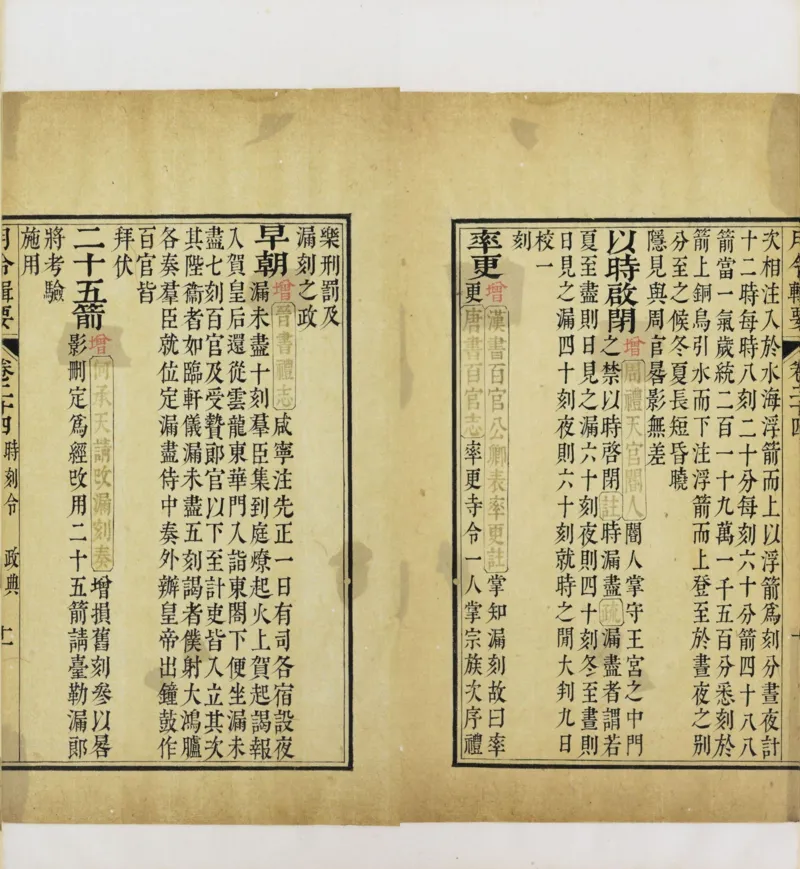 月令輯要 卷二十四 十
次相注入於水海浮箭而上以浮箭爲刻分晝夜計
十二時每時八刻二十分每刻六十分箭四十八八
箭當一氣歲統二百一十九萬一千五百分悉刻於
箭上銅烏引水而下注浮箭而上登至於晝夜之别
分至之候冬夏長短昏曉
隱見與周官晷影無差
以時啟閉 增 周禮天官閽人 閽人掌守王宮之中門
之禁以時啓閉 註 時漏盡 疏 漏盡者謂若
夏至盡則日見之漏六十刻夜則四十刻冬至晝則
日見之漏四十刻夜則六十刻就時之閒大判九日
校一
刻
率更 增 漢書百官公卿表率更註 掌知漏刻故曰率
更 唐書百官志 率更寺令一人掌宗族次序禮
樂刑罰及
漏刻之政
早朝 增 晉書禮志 咸寧注先正一日有司各宿設夜
漏未盡十刻羣臣集到庭燎起火上賀起謁報
入賀皇后還從雲龍東華門入詣東閣下便坐漏未
盡七刻百官及受贄郎官以下至計吏皆入立其次
其陛衞者如臨軒儀漏未盡五刻謁者僕射大鴻臚
各奏羣臣就位定漏盡侍中奏外辦皇帝出鐘鼓作
百官皆
拜伏
二十五箭 增 何承天請改漏刻奏 增損舊刻參以晷
影刪定爲經改用二十五箭請臺勒漏郎
將考驗
施用
月令輯要 卷二十四 時刻令 政典 十一